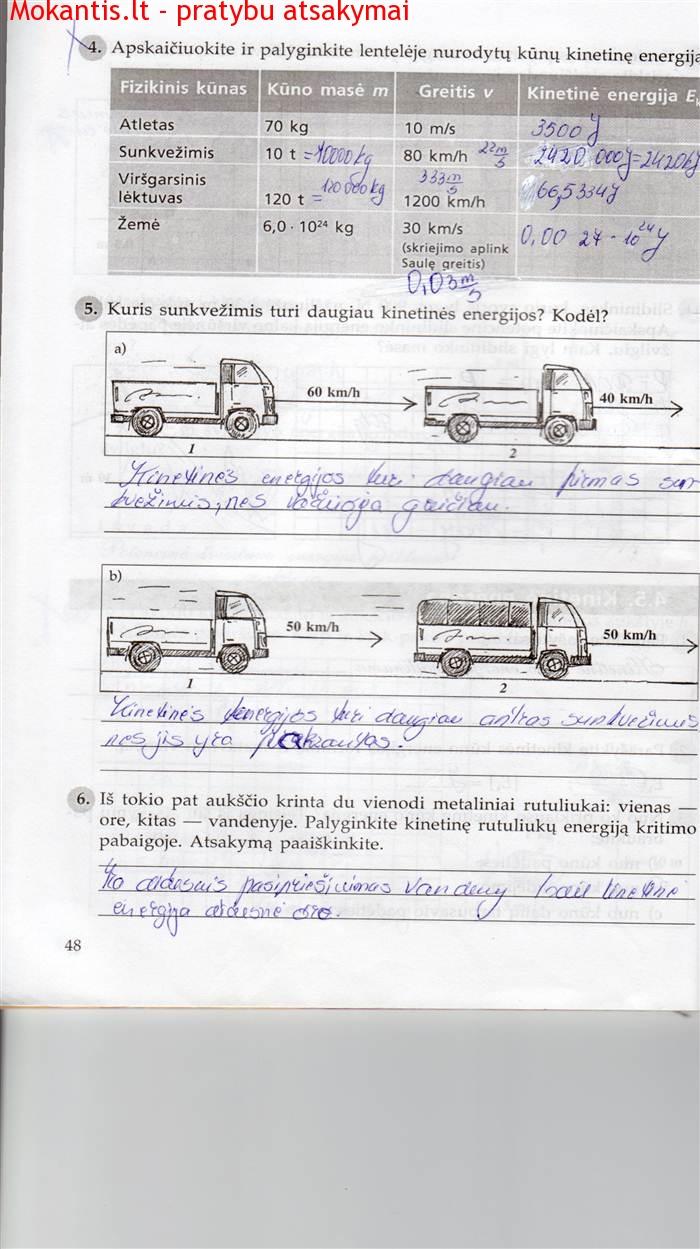 Mokantis.lt - pratybu atsakymai
4. Apskaičiuokite ir palyginkite lentelėje nurodytų kūnų kinetinę energija
Fizikinis kūnas Kūno masė m Greitis v Kinetinė energija E
Atletas 70 kg 10 m/s 3500 J
Sunkvežimis 10 t = 10000 kg 80 km/h 22 m/s 2420 000 J = 2420 kJ
Viršgarsinis 120 000 kg 333 m/s
lėktuvas 120 t = 1200 km/h 66,5334 J
Žemė 6,0 · 10²⁴ kg 30 km/s 0,00 27 · 10²⁴ J
(skriejimo aplink
Saulę greitis)
0,03 m/s
5. Kuris sunkvežimis turi daugiau kinetinės energijos? Kodėl?
a)
60 km/h 40 km/h
1 2
Kinetinės energijos turi daugiau pirmas sun
kvežimis, nes važiuoja greičiau.
b)
50 km/h 50 km/h
1 2
Kinetinės energijos turi daugiau antras sunkvežimis
nes jis yra pakrautas.
6. Iš tokio pat aukščio krinta du vienodi metaliniai rutuliukai: vienas —
ore, kitas — vandenyje. Palyginkite kinetinę rutuliukų energiją kritimo
pabaigoje. Atsakymą paaiškinkite.
pasipriešinimas vandeny kinetinė
energija ore.
48